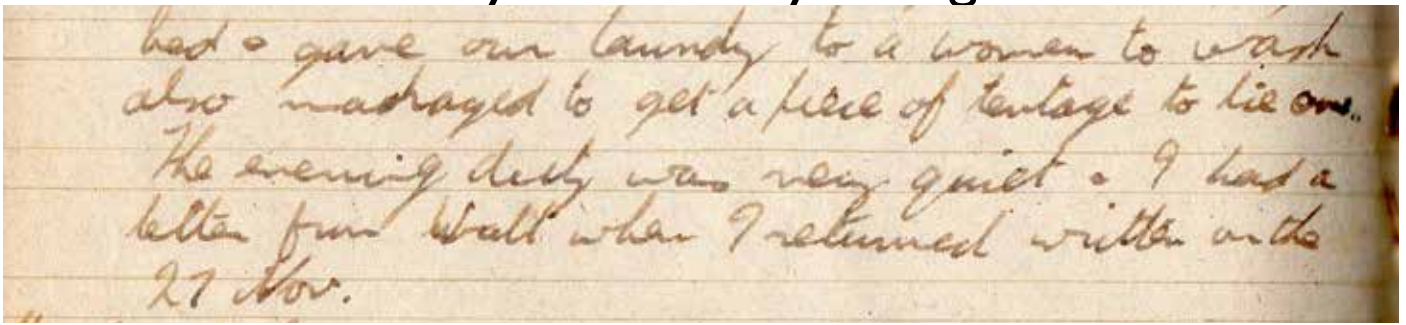 had & gave our laundry to a women to wash
also madnaged to get a piece of tentage to lie on.
The evening duty was very quiet & I had a
letter from Walt when I returned written on the
27 Nov.